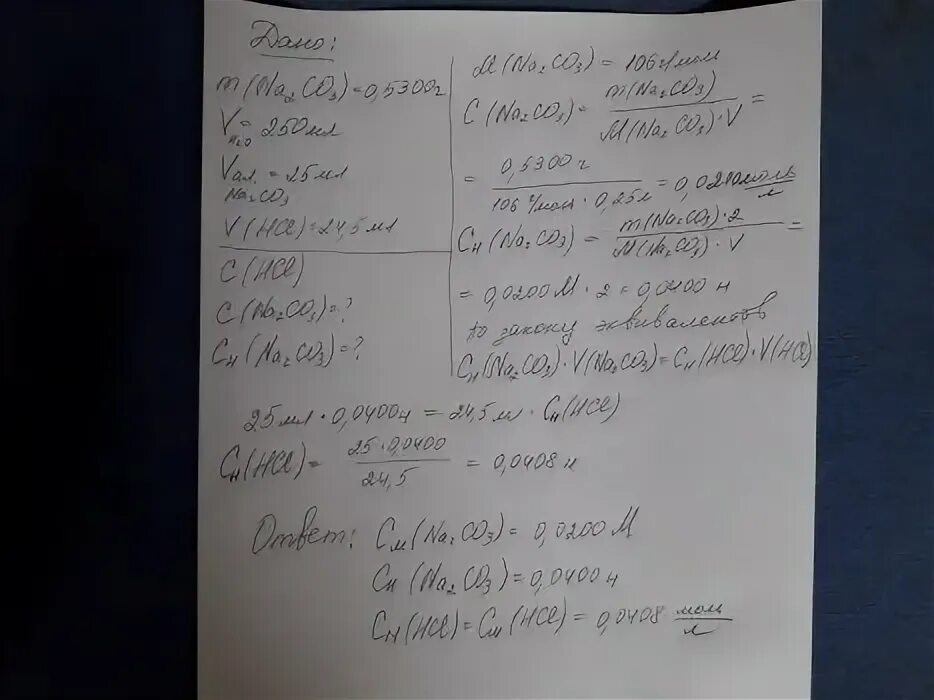 Дано:
m(Na₂CO₃)=0,5300г
V H₂O = 250мл
Vал. = 25мл
Na₂CO₃
V(HCl)=24,5мл
C(HCl)
C(Na₂CO₃)=?
Cн(Na₂CO₃)=?
M(Na₂CO₃) = 106 г/моль
C(Na₂CO₃) = m(Na₂CO₃) / M(Na₂CO₃)·V =
= 0,5300г / 106 г/моль · 0,25л = 0,0200 моль/л
Cн(Na₂CO₃) = m(Na₂CO₃)·2 / M(Na₂CO₃)·V =
= 0,0200М · 2 = 0,0400 н
по закону эквивалентов
Cн(Na₂CO₃)·V(Na₂CO₃)=Cн(HCl)·V(HCl)
25мл · 0,0400н = 24,5м · Cн(HCl)
Cн(HCl) = 25·0,0400 / 24,5 = 0,0408 н
Ответ: Cм(Na₂CO₃) = 0,0200 М
Cн(Na₂CO₃) = 0,0400 н
Cн(HCl) = Cм(HCl) = 0,0408 моль/л